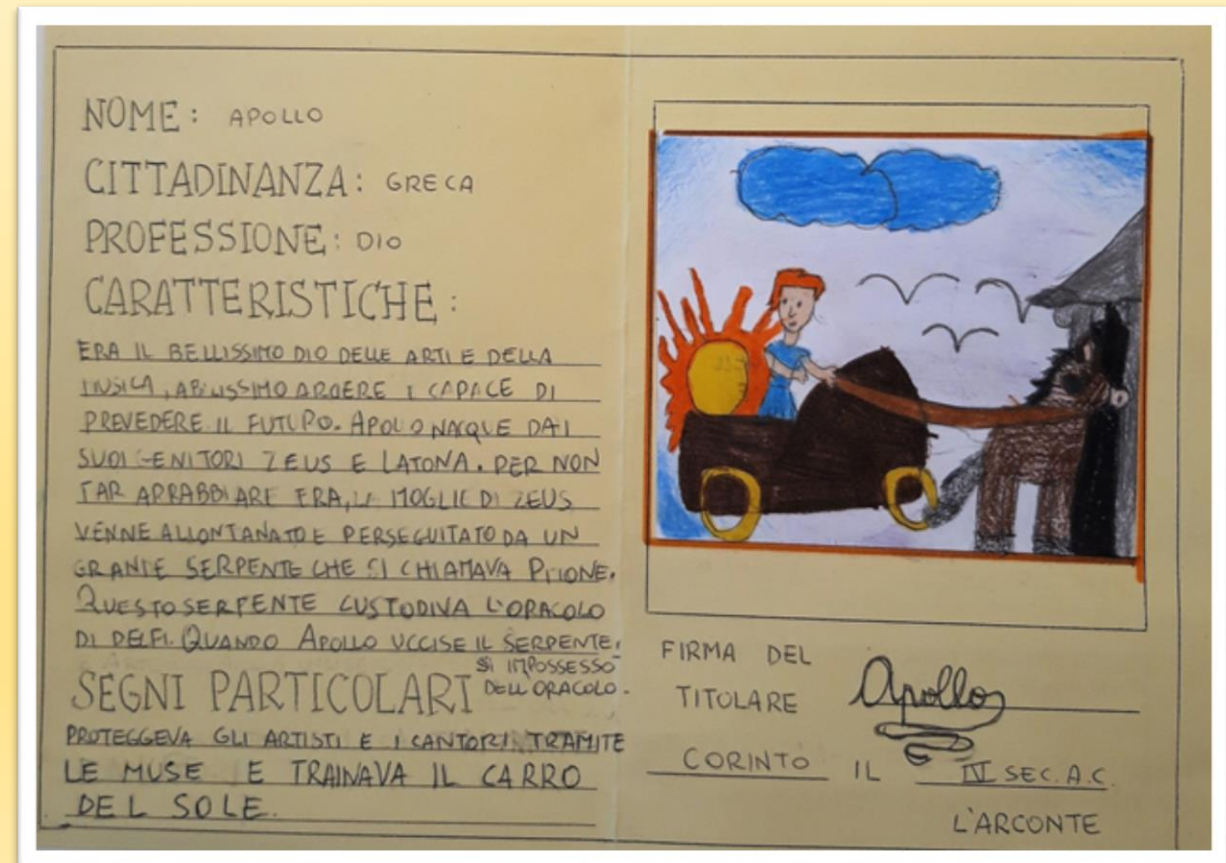 NOME: APOLLO
CITTADINANZA: GRECA
PROFESSIONE: DIO
CARATTERISTICHE:
ERA IL BELLISSIMO DIO DELLE ARTI E DELLA
MUSICA, ABILISSIMO ARCERE E CAPACE DI
PREVEDERE IL FUTURO. APOLLO NACQUE DAI
SUOI GENITORI ZEUS E LATONA. PER NON
FAR ARRABBIARE ERA, LA MOGLIE DI ZEUS
VENNE ALLONTANATO E PERSEGUITATO DA UN
GRANDE SERPENTE CHE SI CHIAMAVA PITONE.
QUESTO SERPENTE CUSTODIVA L'ORACOLO
DI DELFI. QUANDO APOLLO UCCISE IL SERPENTE,
SI IMPOSSESSÒ
DELL'ORACOLO.
SEGNI PARTICOLARI
PROTEGGEVA GLI ARTISTI E I CANTORI TRAMITE
LE MUSE E TRAINAVA IL CARRO
DEL SOLE.
FIRMA DEL
TITOLARE Apollo
CORINTO IL IV SEC. A.C.
L'ARCONTE